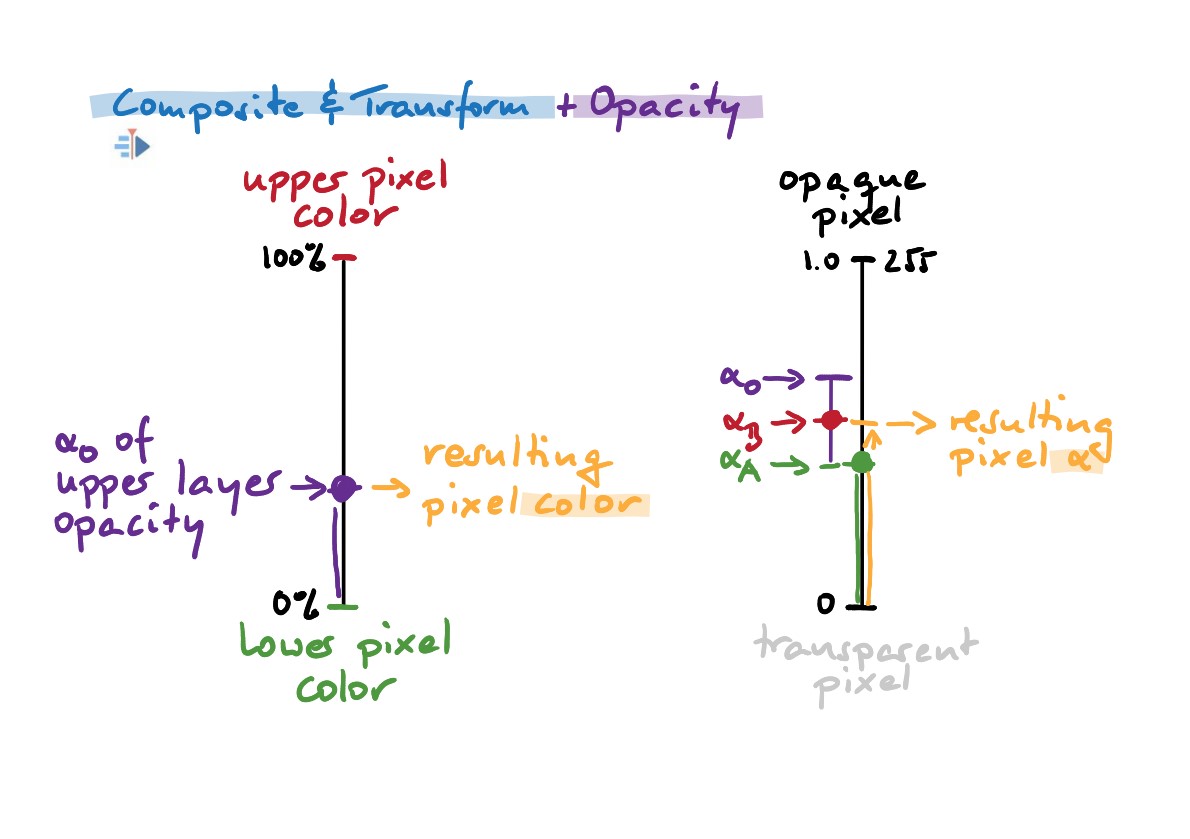 Composite & Transform + Opacity
upper pixel
color
100%
α₀ of
upper layer
opacity
resulting
pixel color
0%
Lower pixel
color
opaque
pixel
1.0 255
α₀
αB
αA
resulting
pixel αS
0
transparent
pixel